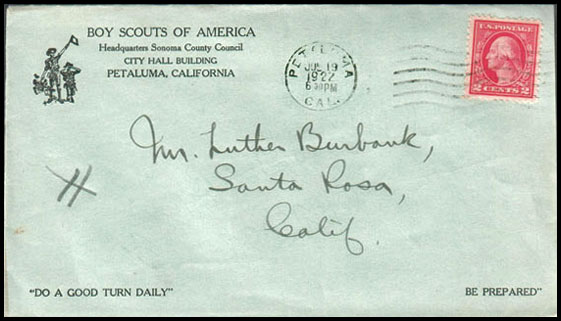 BOY SCOUTS OF AMERICA
Headquarters Sonoma County Council
CITY HALL BUILDING
PETALUMA, CALIFORNIA
PETALUMA
JUL 19
1922
PM
CAL.
U.S. POSTAGE
2 CENTS 2
Mr. Luther Burbank,
Santa Rosa,
Calif.
"DO A GOOD TURN DAILY"
BE PREPARED"